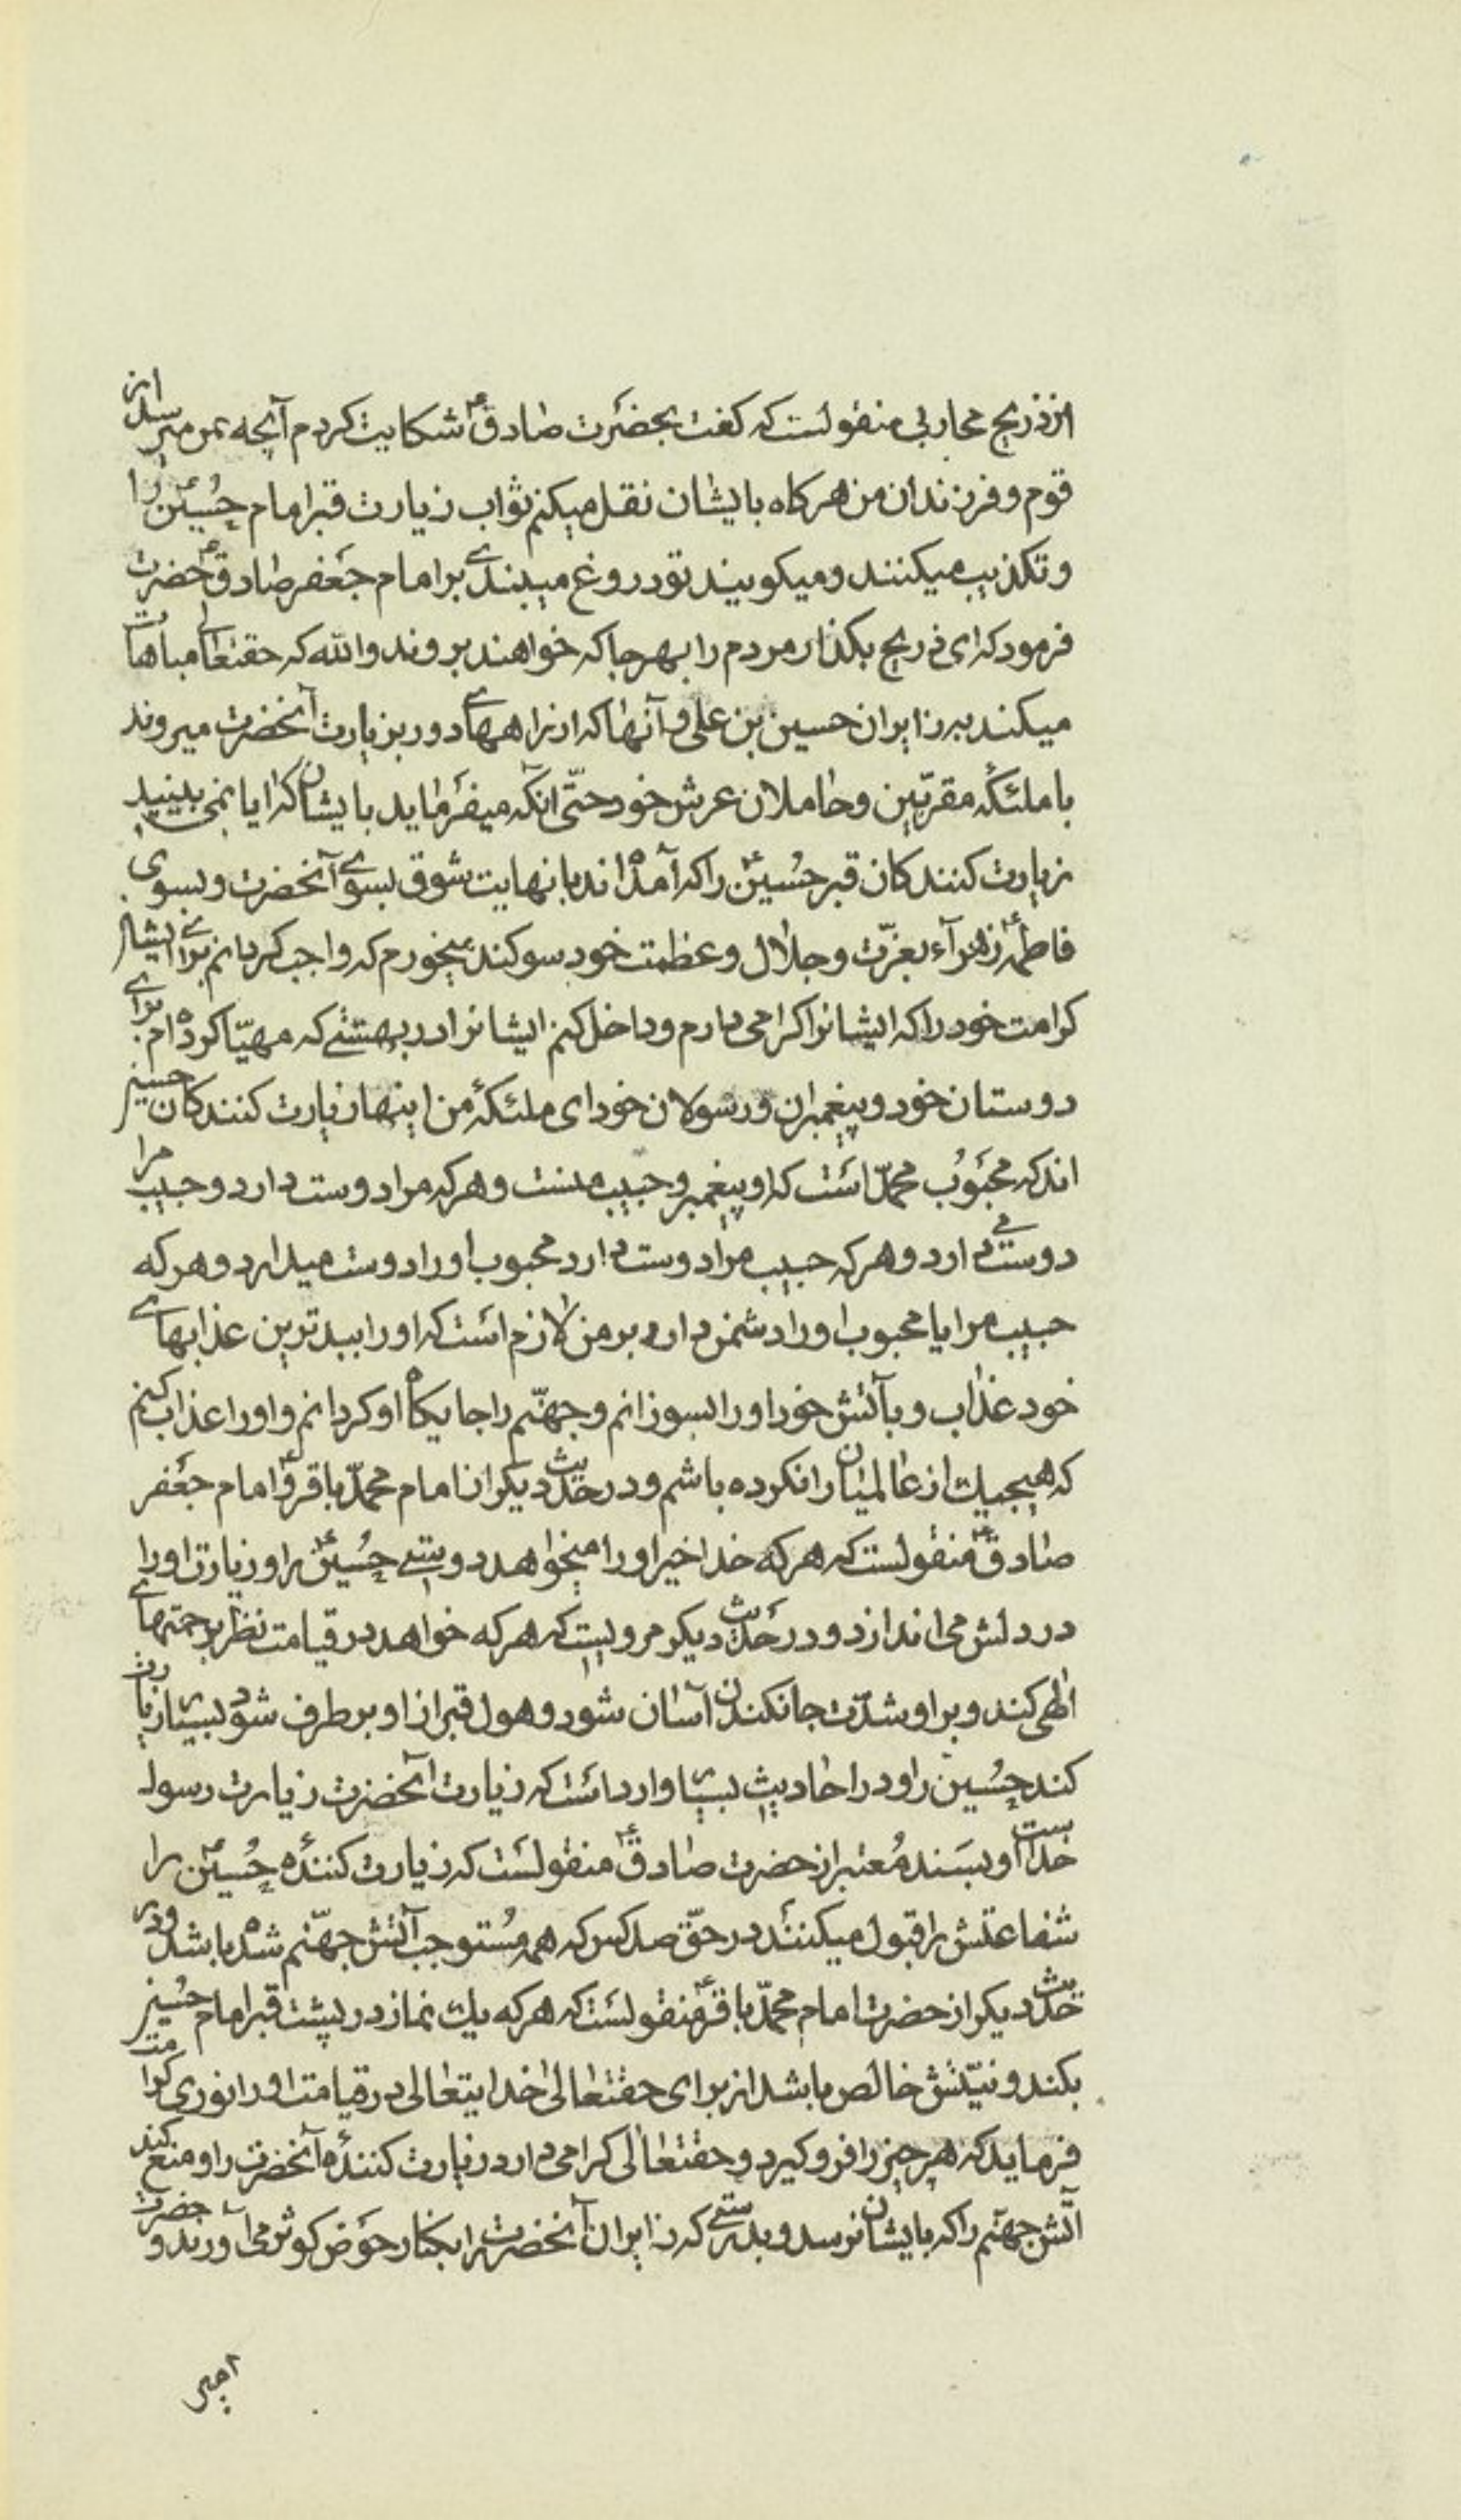 از ذریح محاربی منقولست که گفت بحضرت صادق ع شکایت کردم آنچه بمن میرسد از
قوم و فرزندان من هرکاه بایشان نقل میکنم ثواب زیارت قبر امام حسین ع را
و تکذیب میکنند و میکویند تو دروغ میبندی بر امام جعفر صادق ع حضرت
فرمود که ای ذریح بکذار مردم را بهر جا که خواهند بروند والله که حقتعالی مباهات
میکند بزایران حسین بن علی و آنها که از راههای دور بزیارت آنحضرت میروند
با ملئکه مقربین و حاملان عرش خود حتّی آنکه میفرماید بایشان که ایا نمی بینید
زیارت کنندکان قبر حسین ع را که آمده اند با نهایت شوق بسوی آنحضرت و بسوی
فاطمه ع زهرآء بعزّت و جلال و عظمت خود سوکند میخورم که واجب کردانم برای ایشان
کرامت خود را که ایشانرا کرامی دارم و داخل کنم ایشانرا در بهشتی که مهیّا کرده ام برای
دوستان خود و پیغمبران و رسولان خود ای ملئکهٔ من اینها زیارت کنندکان حسین
اند که محبوب محمّد است که او پیغمبر و حبیب منست و هر که مرا دوست دارد و حبیب مرا
دوست می دارد و هر که حبیب مرا دوست دارد محبوب او را دوست میدارد و هر که
حبیب مرا یا محبوب او را دشمن دارد بر من لازم است که او را ببدترین عذابهای
خود عذاب و بآتش خود او را بسوزانم و جهنّم را جایکاه او کردانم و او را عذاب کنم
که هیچیك از عالمیان را نکرده باشم و در حدیث دیکر از امام محمّد باقر ع و امام جعفر
صادق ع منقولست که هر که خدا خیر او را میخواهد دوستی حسین ع را و زیارت او را
در دلش می اندازد و در حدیث دیکر مرویست که هر که خواهد در قیامت نظر برحمتهای
الهی کند و بر او شدّت جانکندن آسان شود و هول قبر از او بر طرف شود بسیار زیارت
کند حسین را و در احادیث بسیار وارد است که زیارت آنحضرت زیارت رسول
خداست او بسند معتبر از حضرت صادق ع منقولست که زیارت کنندهٔ حسین ع را
شفاعتش را قبول میکنند در حقّ صد کس که همه مستوجب آتش جهنّم شده باشد و در
حدیث دیکر از حضرت امام محمّد باقر ع منقولست که هر که یك نماز در پشت قبر امام حسین
بکند و نیّتش خالص باشد از برای حقتعالی خدایتعالی در قیامت او را نوری کرامت
فرماید که هر چیز را فرو کیرد و حقتعالی کرامی دارد زیارت کنندهٔ آنحضرت را و منع کند
آتش جهنم را که بایشان نرسد و بدرستی که زایران آنحضرت را بکنار حوض کوثر می آورند و حضرت
امیر